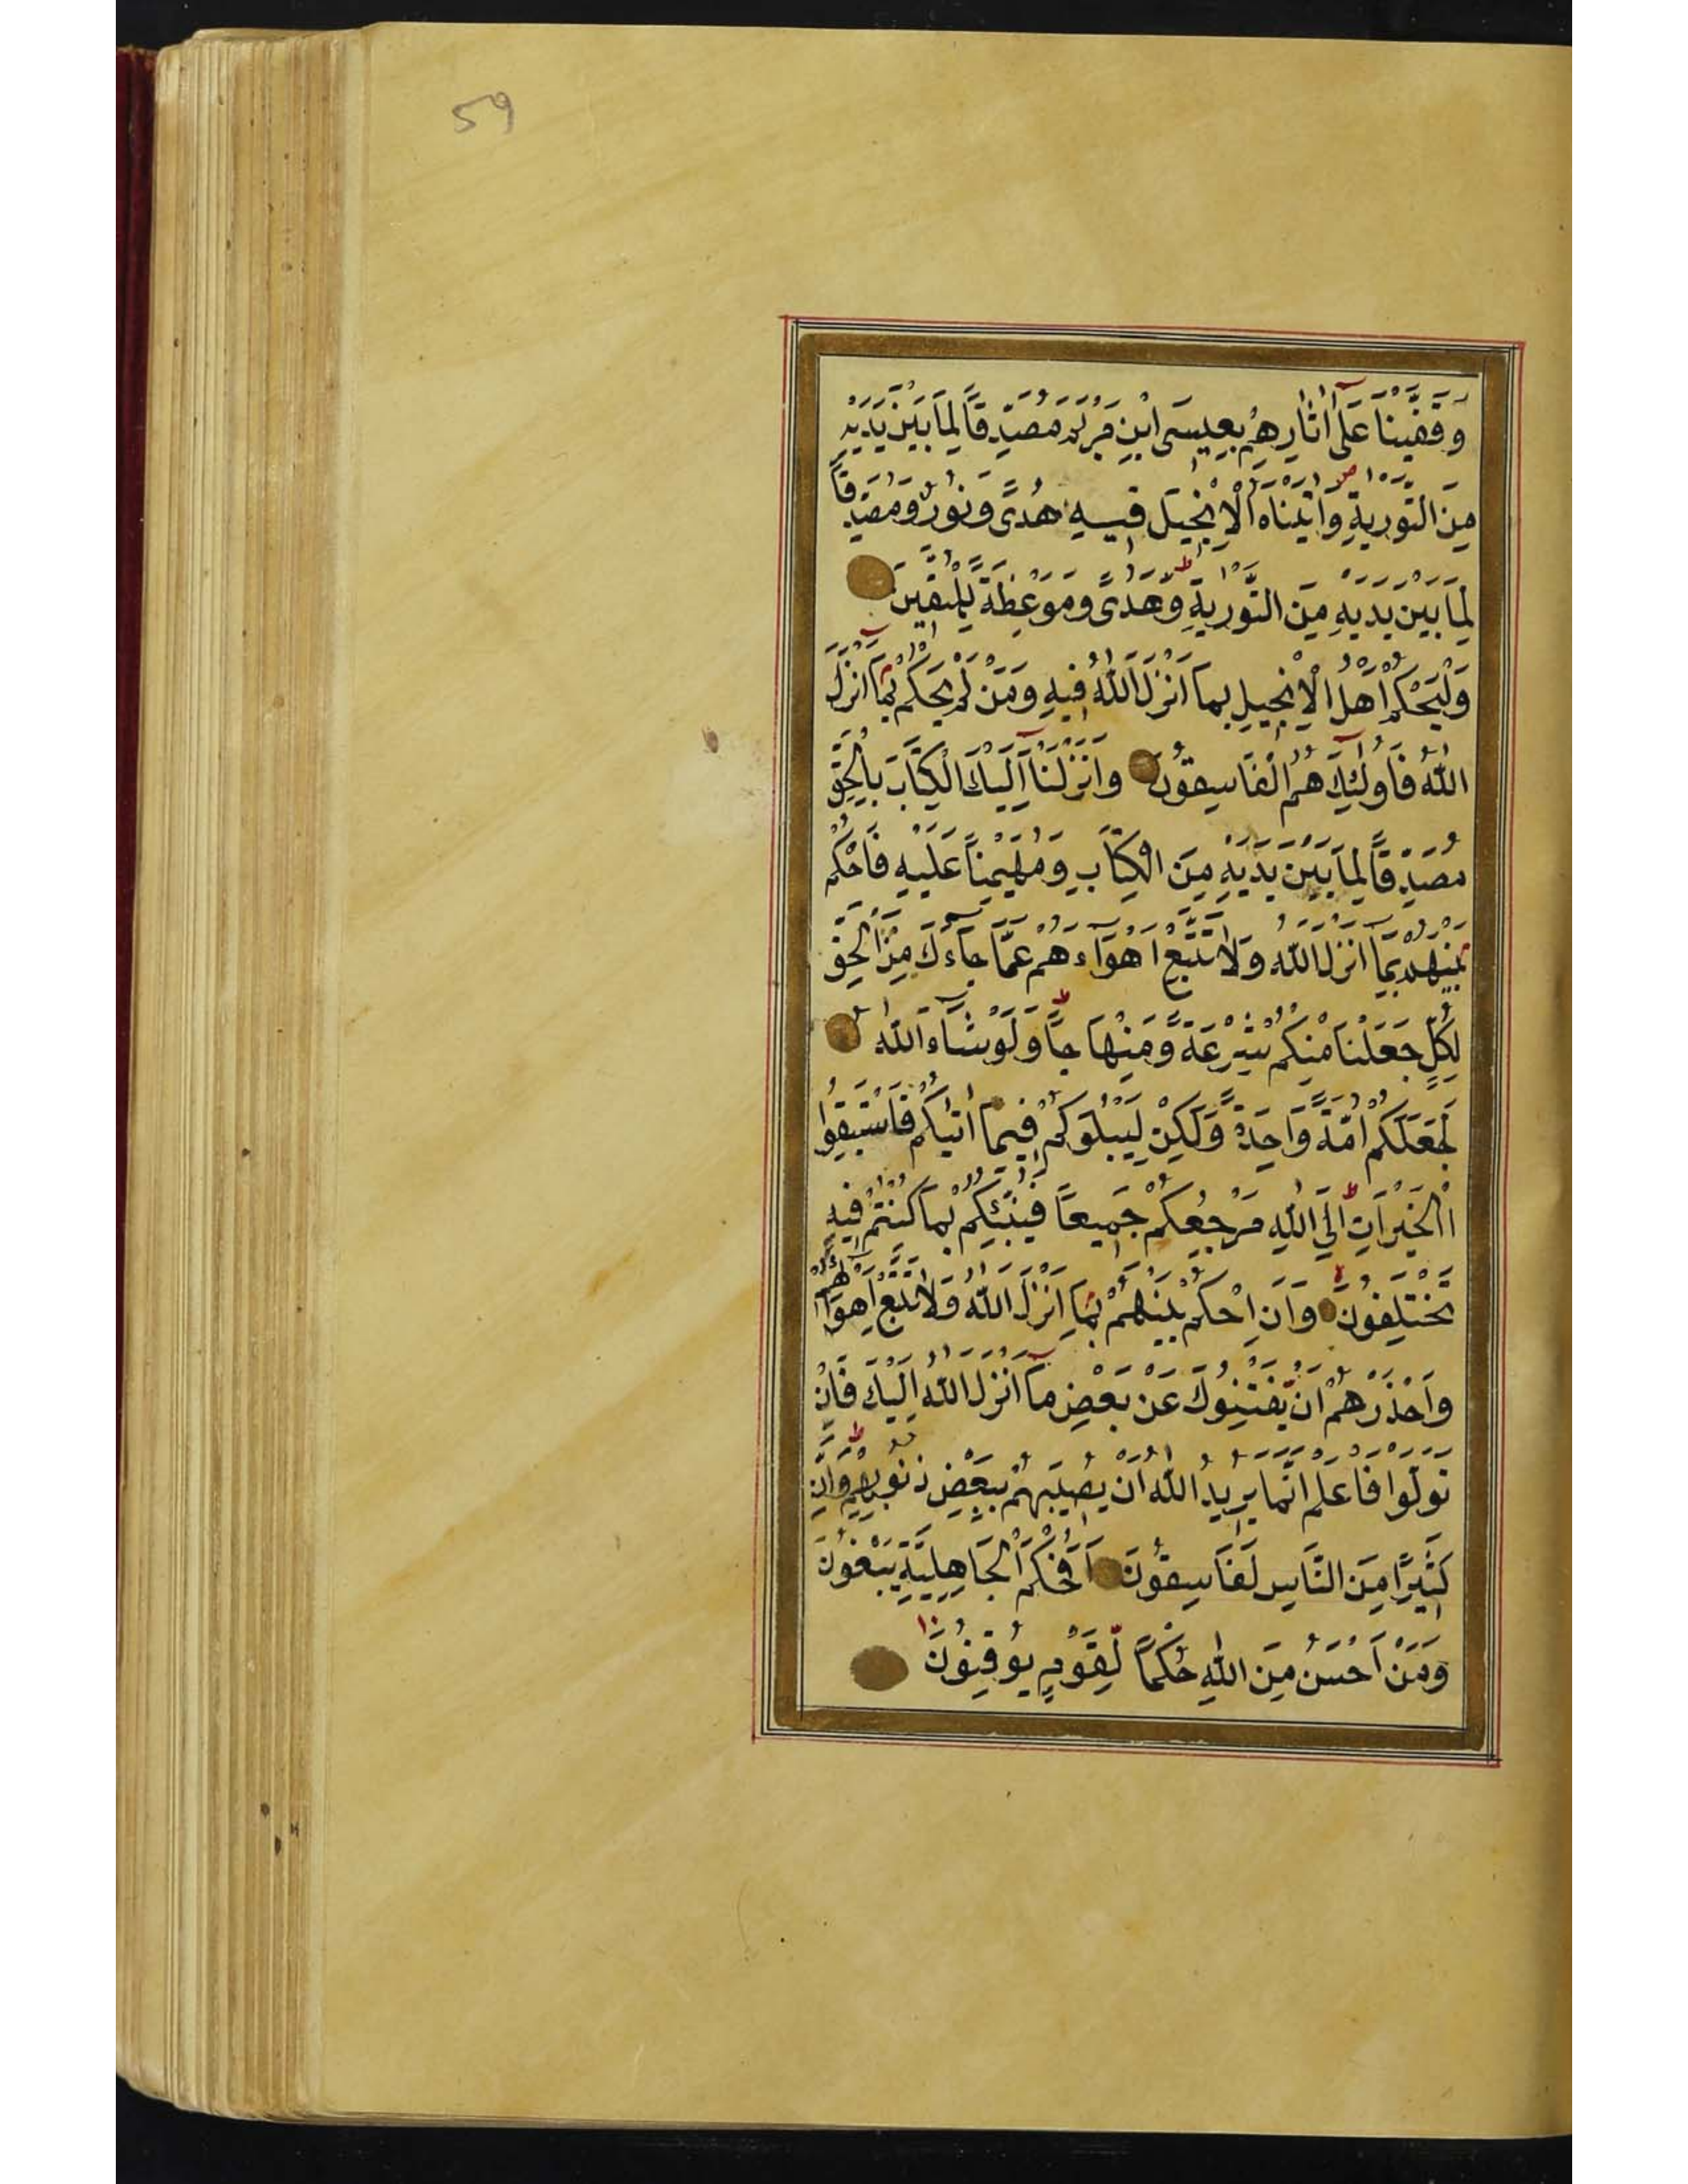 59
وَقَفَّيْنَا عَلٰٓى اٰثَارِهِمْ بِعِيسَى ابْنِ مَرْيَمَ مُصَدِّقًا لِمَا بَيْنَ يَدَيْهِ
مِنَ التَّوْرٰيةِ وَاٰتَيْنَاهُ الْاِنْجِيلَ فِيهِ هُدًى وَنُورٌ وَمُصَدِّقًا
لِمَا بَيْنَ يَدَيْهِ مِنَ التَّوْرٰيةِ وَهُدًى وَمَوْعِظَةً لِلْمُتَّقِينَ
وَلْيَحْكُمْ اَهْلُ الْاِنْجِيلِ بِمَا اَنْزَلَ اللّٰهُ فِيهِ وَمَنْ لَمْ يَحْكُمْ بِمَٓا اَنْزَلَ
اللّٰهُ فَاُولٰٓئِكَ هُمُ الْفَاسِقُونَ وَاَنْزَلْنَٓا اِلَيْكَ الْكِتَابَ بِالْحَقِّ
مُصَدِّقًا لِمَا بَيْنَ يَدَيْهِ مِنَ الْكِتَابِ وَمُهَيْمِنًا عَلَيْهِ فَاحْكُمْ
بَيْنَهُمْ بِمَٓا اَنْزَلَ اللّٰهُ وَلَا تَتَّبِعْ اَهْوَٓاءَهُمْ عَمَّا جَٓاءَكَ مِنَ الْحَقِّ
لِكُلٍّ جَعَلْنَا مِنْكُمْ شِرْعَةً وَمِنْهَاجًا وَلَوْ شَٓاءَ اللّٰهُ
لَجَعَلَكُمْ اُمَّةً وَاحِدَةً وَلٰكِنْ لِيَبْلُوَكُمْ فِيمَا اٰتٰيكُمْ فَاسْتَبِقُوا
الْخَيْرَاتِ اِلَى اللّٰهِ مَرْجِعُكُمْ جَمِيعًا فَيُنَبِّئُكُمْ بِمَا كُنْتُمْ فِيهِ
تَخْتَلِفُونَ وَاَنِ احْكُمْ بَيْنَهُمْ بِمَٓا اَنْزَلَ اللّٰهُ وَلَا تَتَّبِعْ اَهْوَٓاءَهُمْ
وَاحْذَرْهُمْ اَنْ يَفْتِنُوكَ عَنْ بَعْضِ مَٓا اَنْزَلَ اللّٰهُ اِلَيْكَ فَاِنْ
تَوَلَّوْا فَاعْلَمْ اَنَّمَا يُرِيدُ اللّٰهُ اَنْ يُصِيبَهُمْ بِبَعْضِ ذُنُوبِهِمْ وَاِنَّ
كَثِيرًا مِنَ النَّاسِ لَفَاسِقُونَ اَفَحُكْمَ الْجَاهِلِيَّةِ يَبْغُونَ
وَمَنْ اَحْسَنُ مِنَ اللّٰهِ حُكْمًا لِقَوْمٍ يُوقِنُونَ ١٠